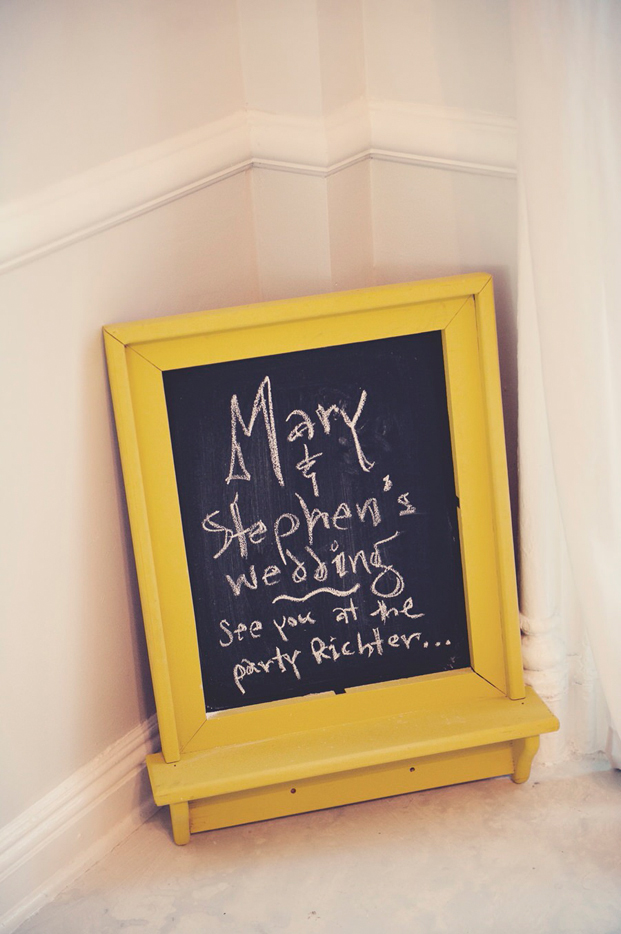 Mary
&
Stephen's
wedding
See you at the
party Richter...